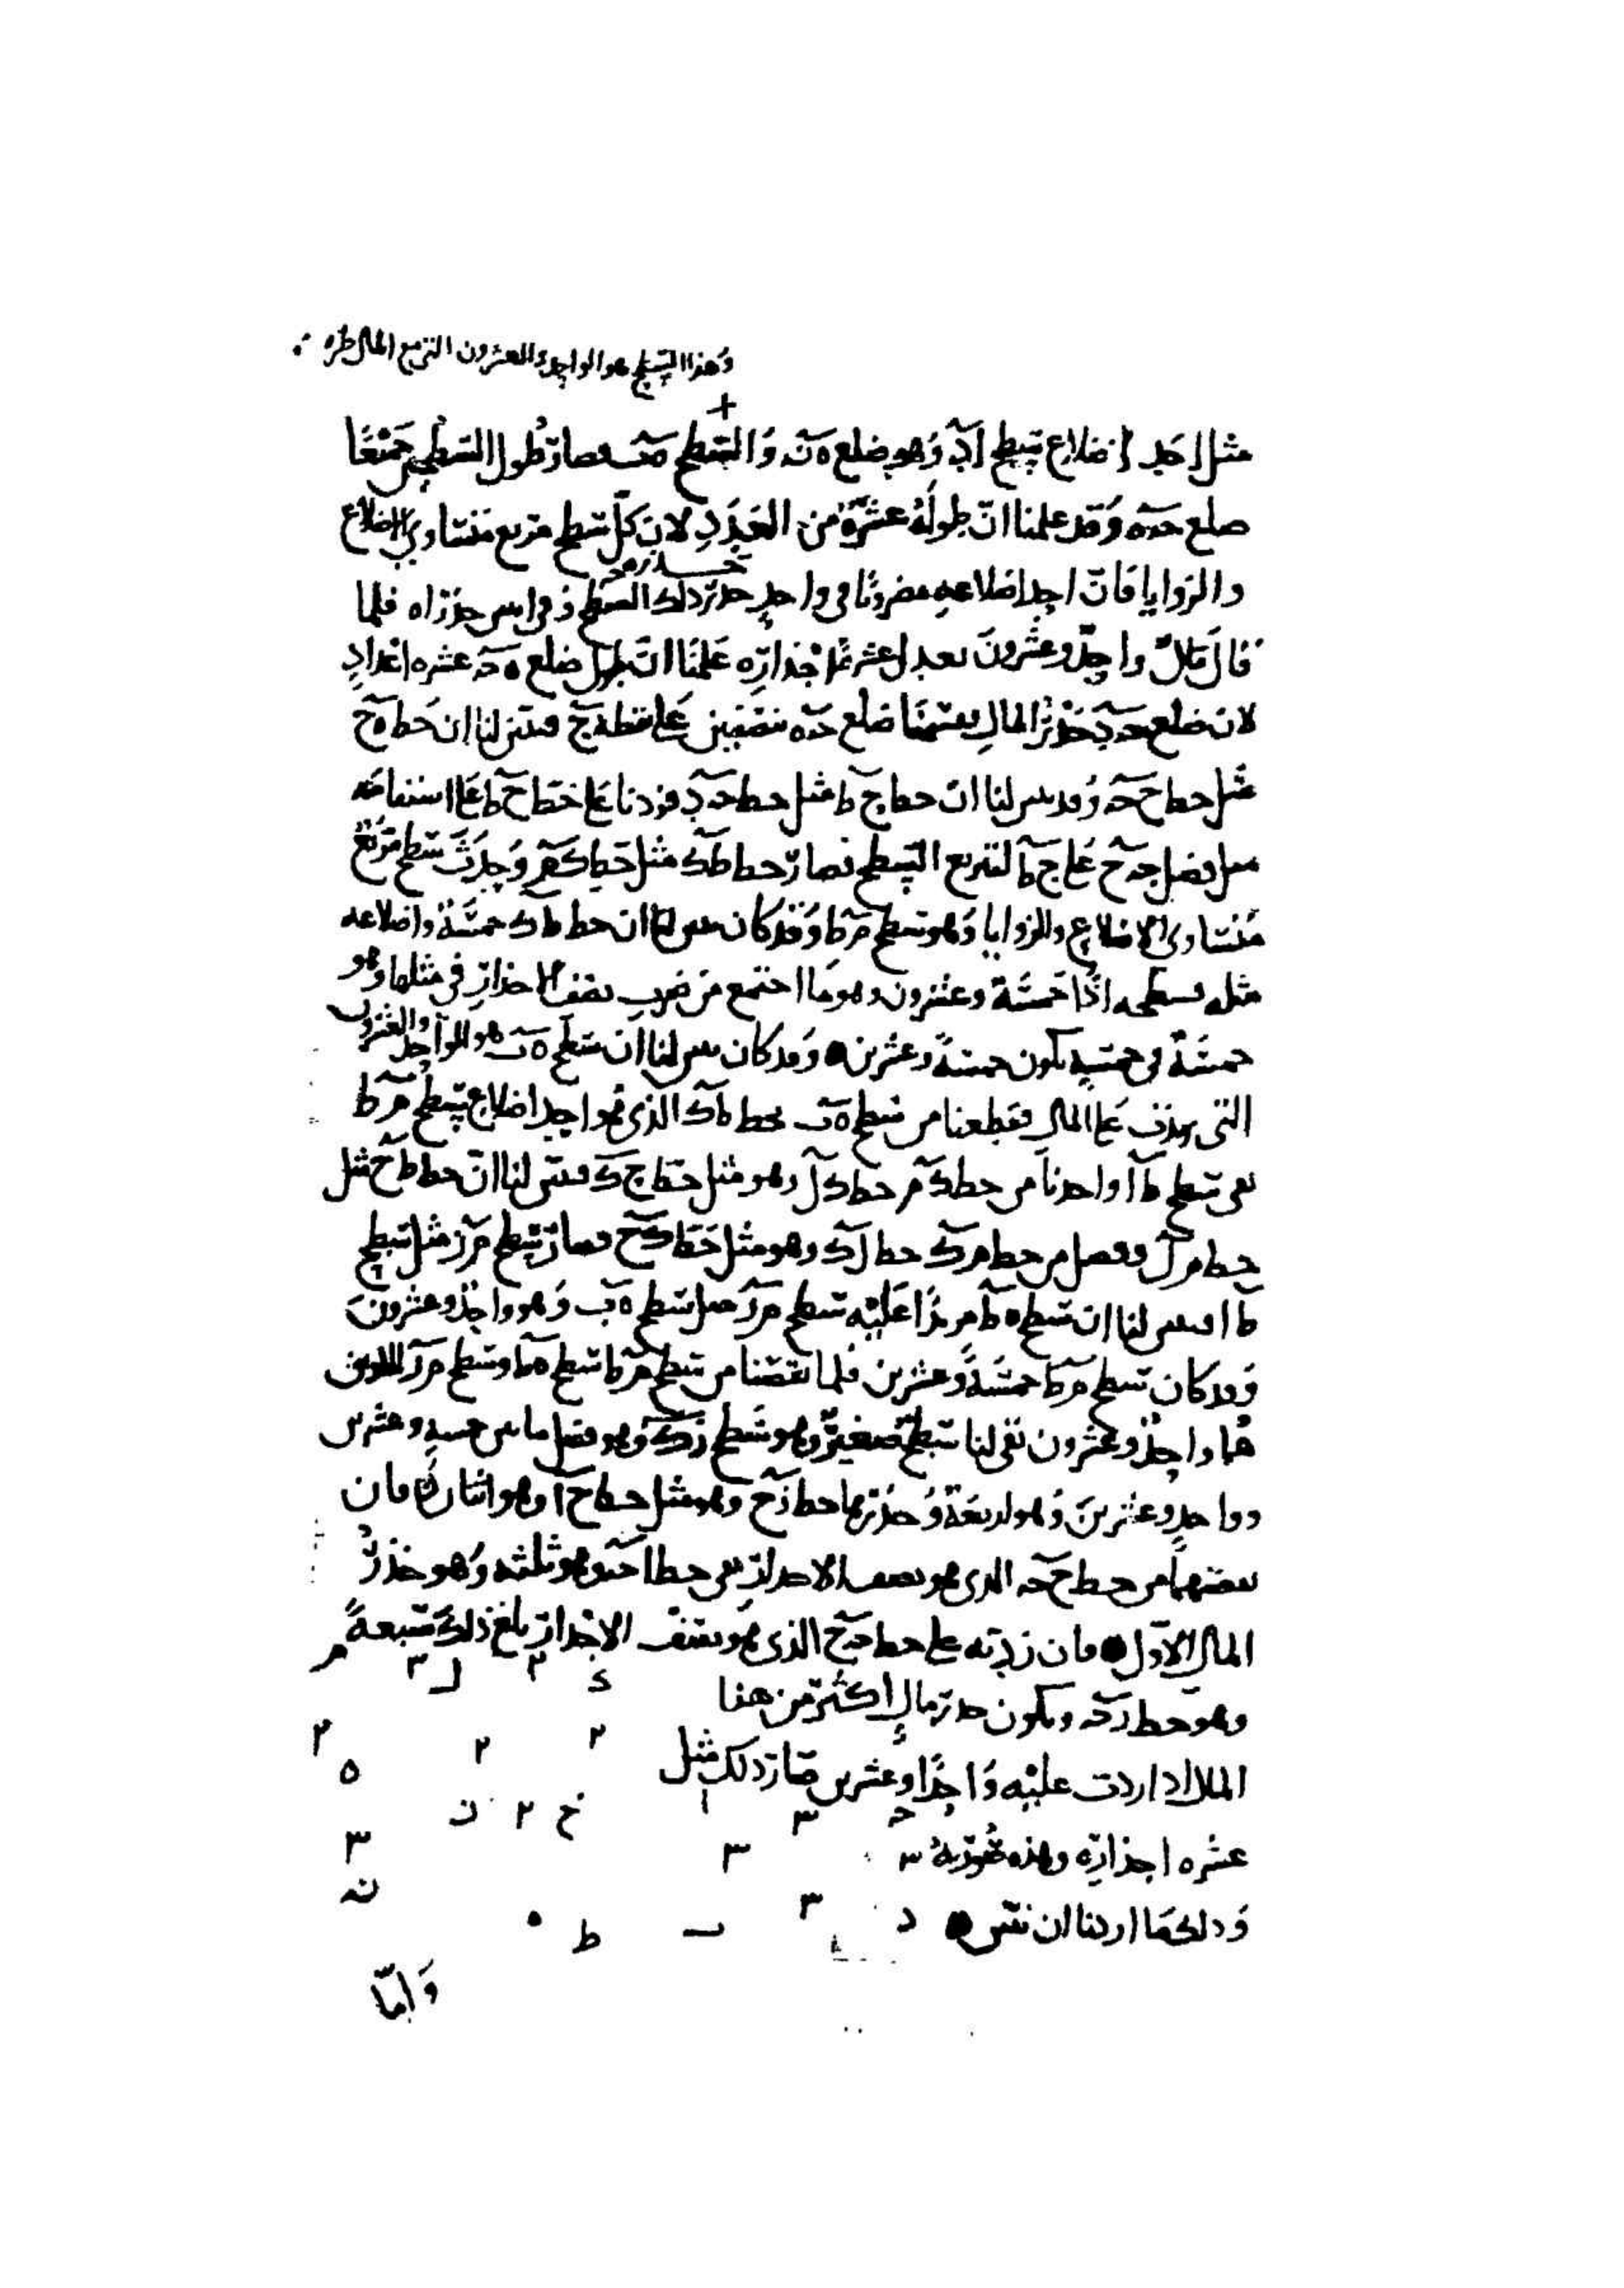 وهذا السطح هو الواحد والعشرون التي مع المال
مثل احد اضلاع سطح اد وهو ضلع ه ن والسطح ه ب فصار طول السطحين جميعًا
ضلع ح ه وقد علمنا انّ طوله عشرة من العدد لان كل سطح مربع متساوي الاضلاع
والزوايا فانّ احد اضلاعه مضروبًا في واحد جذر ذلك السطح وفي اثنين جذراه فلما
قال مال واحد وعشرون يعدل عشرة اجذاره علمنا انّ طول ضلع ه ح عشرة اعداد
لان ضلع ح د جذر المال فقسمنا ضلع ح ه بنصفين على نقطة ح فتبين لنا ان خط ه ح
مثل خط ح ح وقد تبين لنا ان خط ح ط مثل خط ح د فزدنا على خط ح ط على استقامته
مثل فضل ح ح على ح ط لتربع السطح فصار خط ط ك مثل خط ك م وحدث سطح مربع
متساوي الاضلاع والزوايا وهو سطح م ط وقد كان تبين لنا ان خط ط ك خمسة واضلاعه
مثله فسطحه اذًا خمسة وعشرون وهو ما اجتمع من ضرب نصف الاجذار في مثلها وهو
خمسة في خمسة يكون خمسة وعشرين وقد كان تبين لنا ان سطح ه ب هو الواحد والعشرون
التي زيدت على المال فقطعنا من سطح ه ب بخط ط ك الذي هو احد اضلاع سطح م ط
بقي سطح ط ا واخذنا من خط ك م خط ك ل وهو مثل خط ح ك فتبين لنا انّ خط ط ح مثل
خط م ل وفضل من خط م ك خط ل ك وهو مثل خط ك ح فصار سطح م ر مثل سطح
ط ا فتبين لنا ان سطح ه ط مزيدًا عليه سطح م ر مثل سطح ه ب وهو واحد وعشرون
وقد كان سطح م ط خمسة وعشرين فلما نقصنا من سطح م ط سطح ه ط وسطح م ر اللذين
هما واحد وعشرون بقي لنا سطح صغير وهو سطح ر ك وهو فضل ما بين خمسة وعشرين
وواحد وعشرين وهو اربعة وجذرها خط ر ح وهو مثل خط ح ا وهو اثنان فان
نقصتهما من خط ح ح الذي هو نصف الاجذار بقي خط ا ح وهو ثلثه وهو جذر
المال الاول فان زدته على خط ح ح الذي هو نصف الاجذار بلغ ذلك سبعة
وهو خط ر ح ويكون جذر مال اكثر من هذا
المال اذا زدت عليه واحدًا وعشرين صار ذلك مثل
عشره اجذاره وهذه صورته
وذلك ما اردنا ان نبين
وامّا